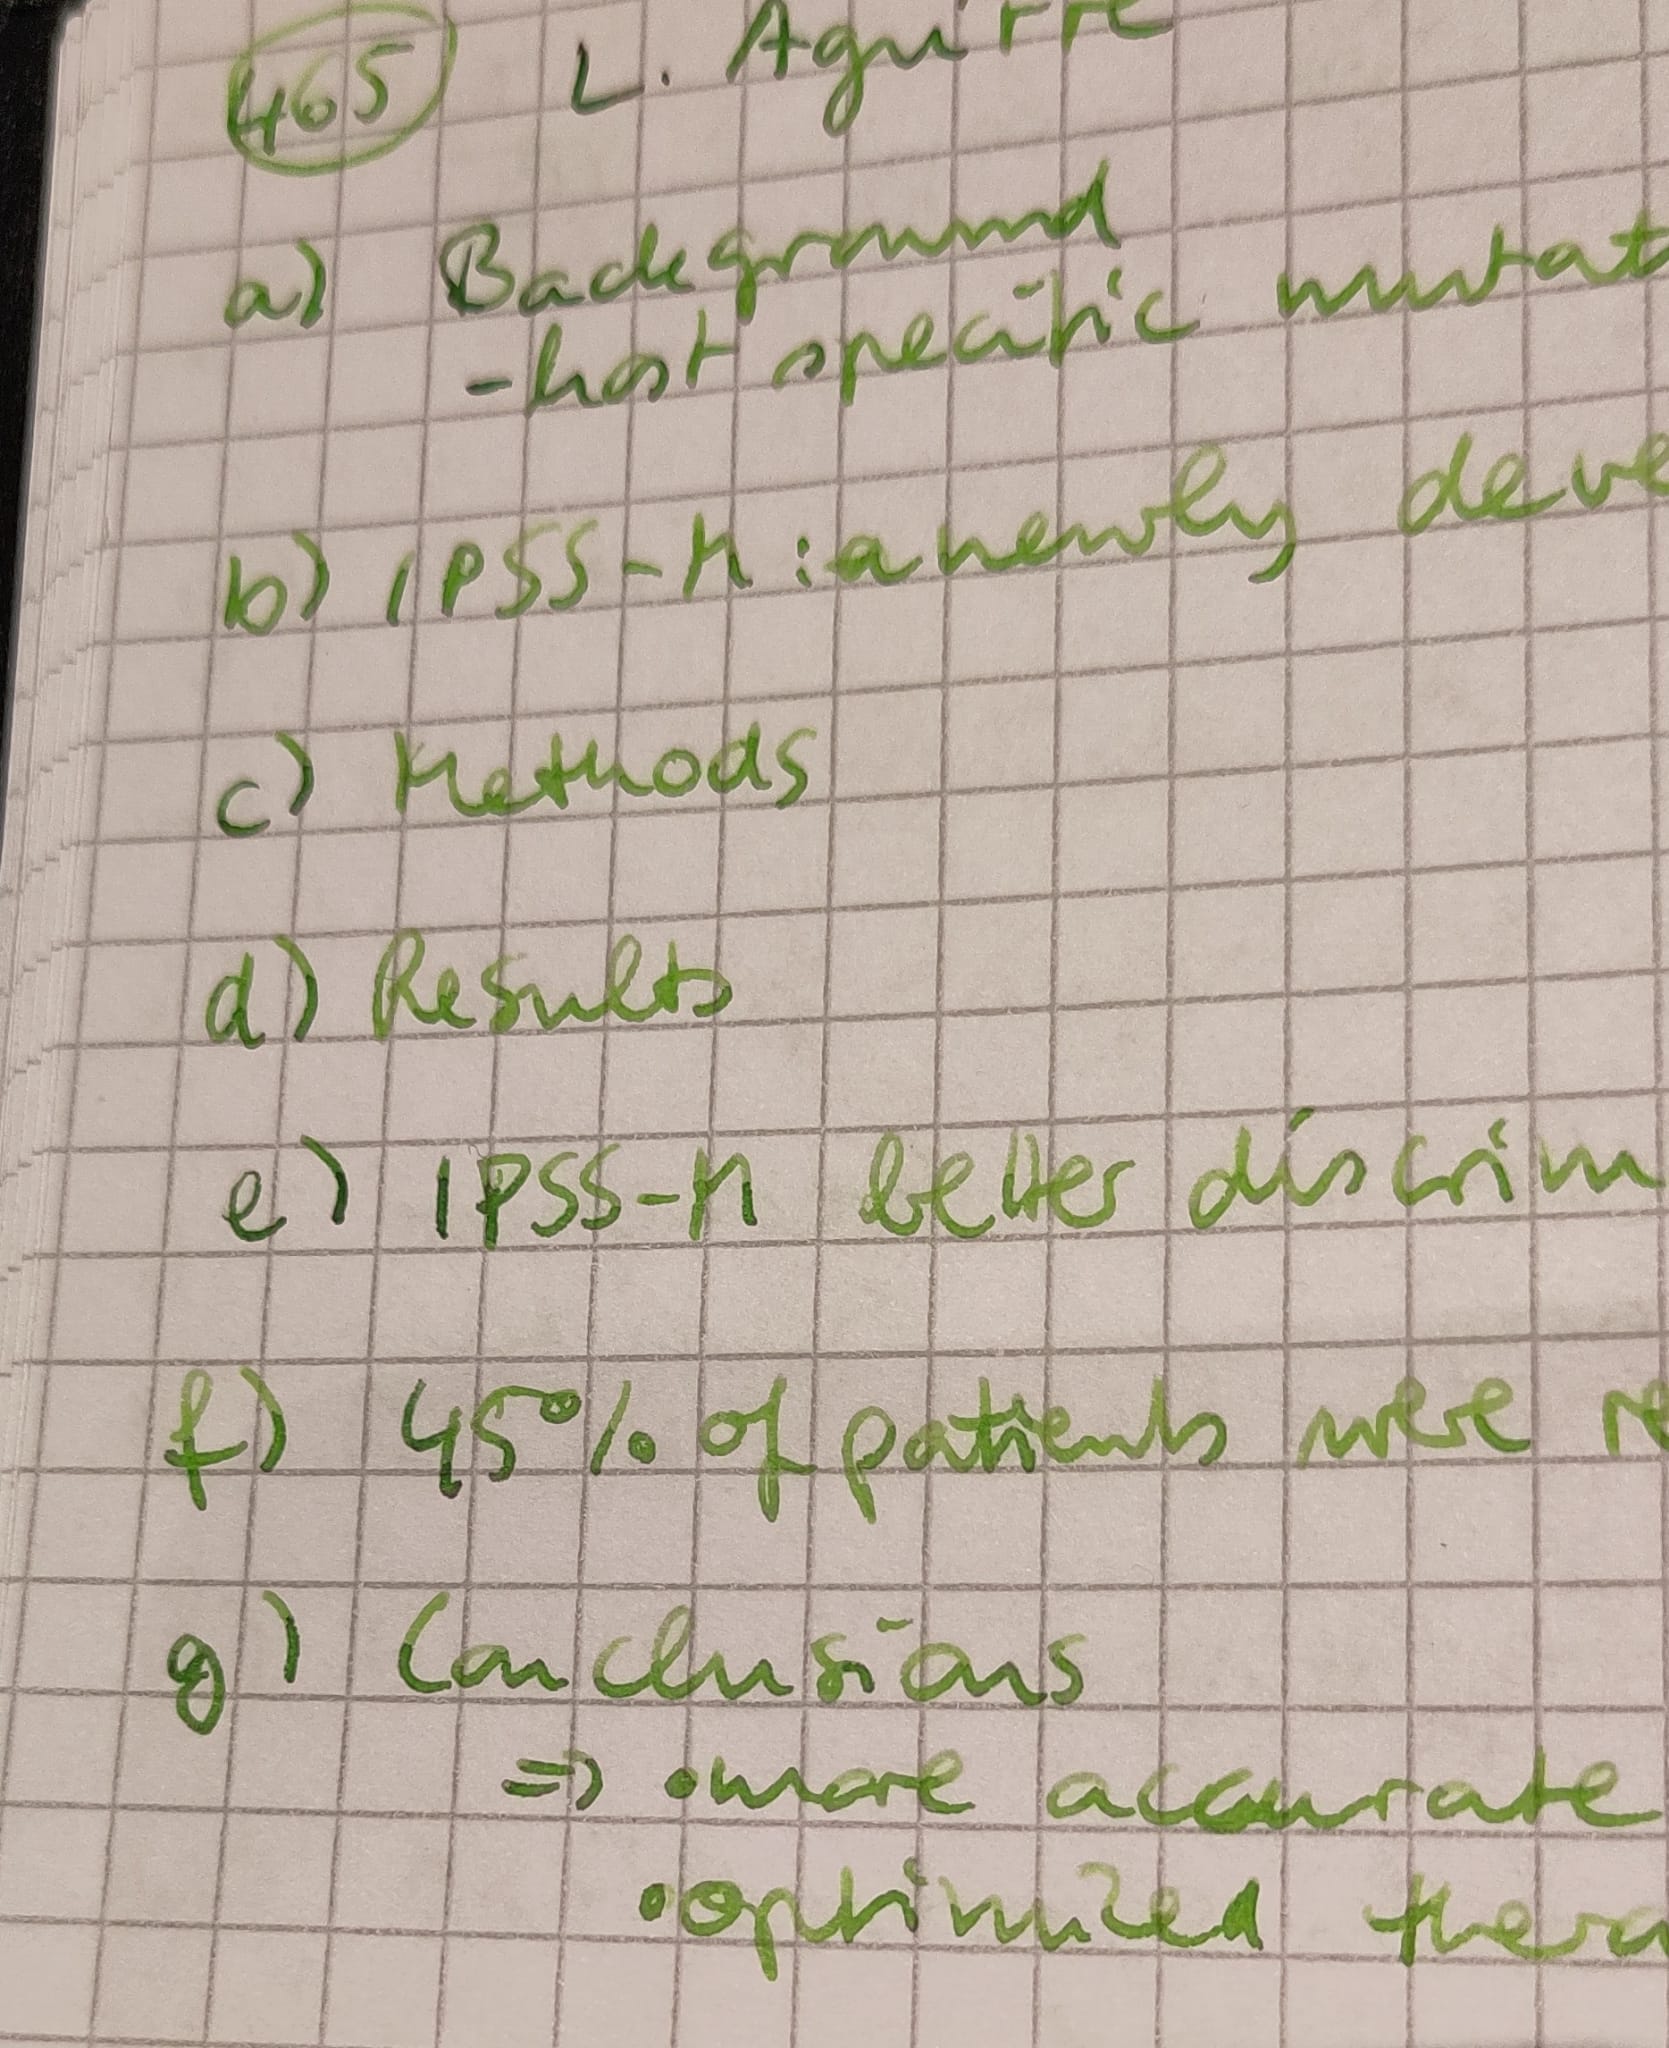 465 L. Aguirre
a) Background
- host specific mutat
b) IPSS-M : a newly deve
c) Methods
d) Results
e) IPSS-M better discrim
f) 45% of patients were re
g) Conclusions
=> • more accurate
• optimized thera